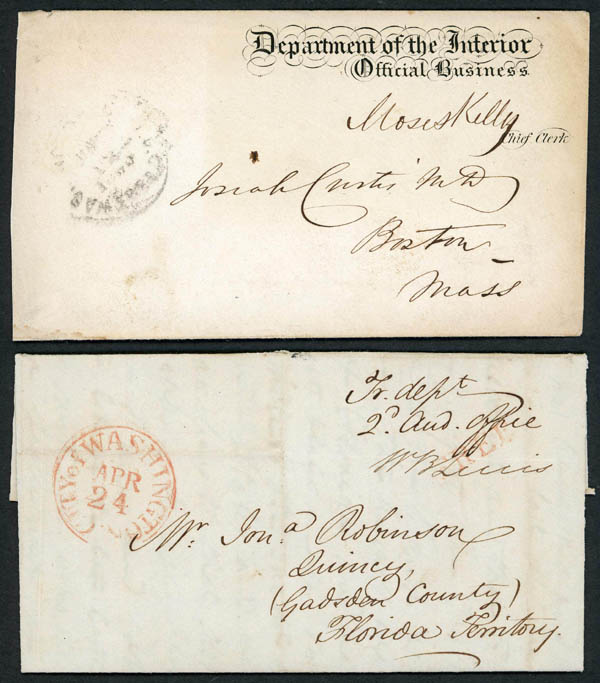 Department of the Interior
Official Business.
Moses Kelly
Chief Clerk
Josiah Curtis M.D.
Boston
Mass
Tr. dept
2d. Aud. office
W B Lewis
FREE
CITY of WASHINGTON
APR
24
Mr. Jona Robinson
Quincy,
(Gadsden County)
Florida Territory.